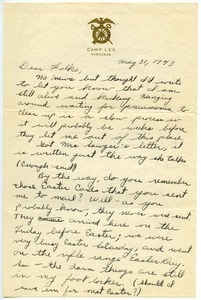 CAMP LEE
VIRGINIA
May 31, 1943
Dear Folks,
No news but thought I'd write
to let you know that I am
still alive and kicking. Hanging
around waiting for pneumonia to
clear up is a slow process
it will probably be weeks before
they let me out of this place
Got Mrs. 's letter, it
is written just the way she talks
(Enough said)
By the way, do you remember
those Easter Cards that you sent
me to mail? Well - as you
probably know, they never were sent
They arrived here on the
Friday before Easter; we were
very busy Saturday, and went
on the rifle range Easter Day.
so the darn things are still
in my foot locker. (Should I
save 'em for next Easter?)